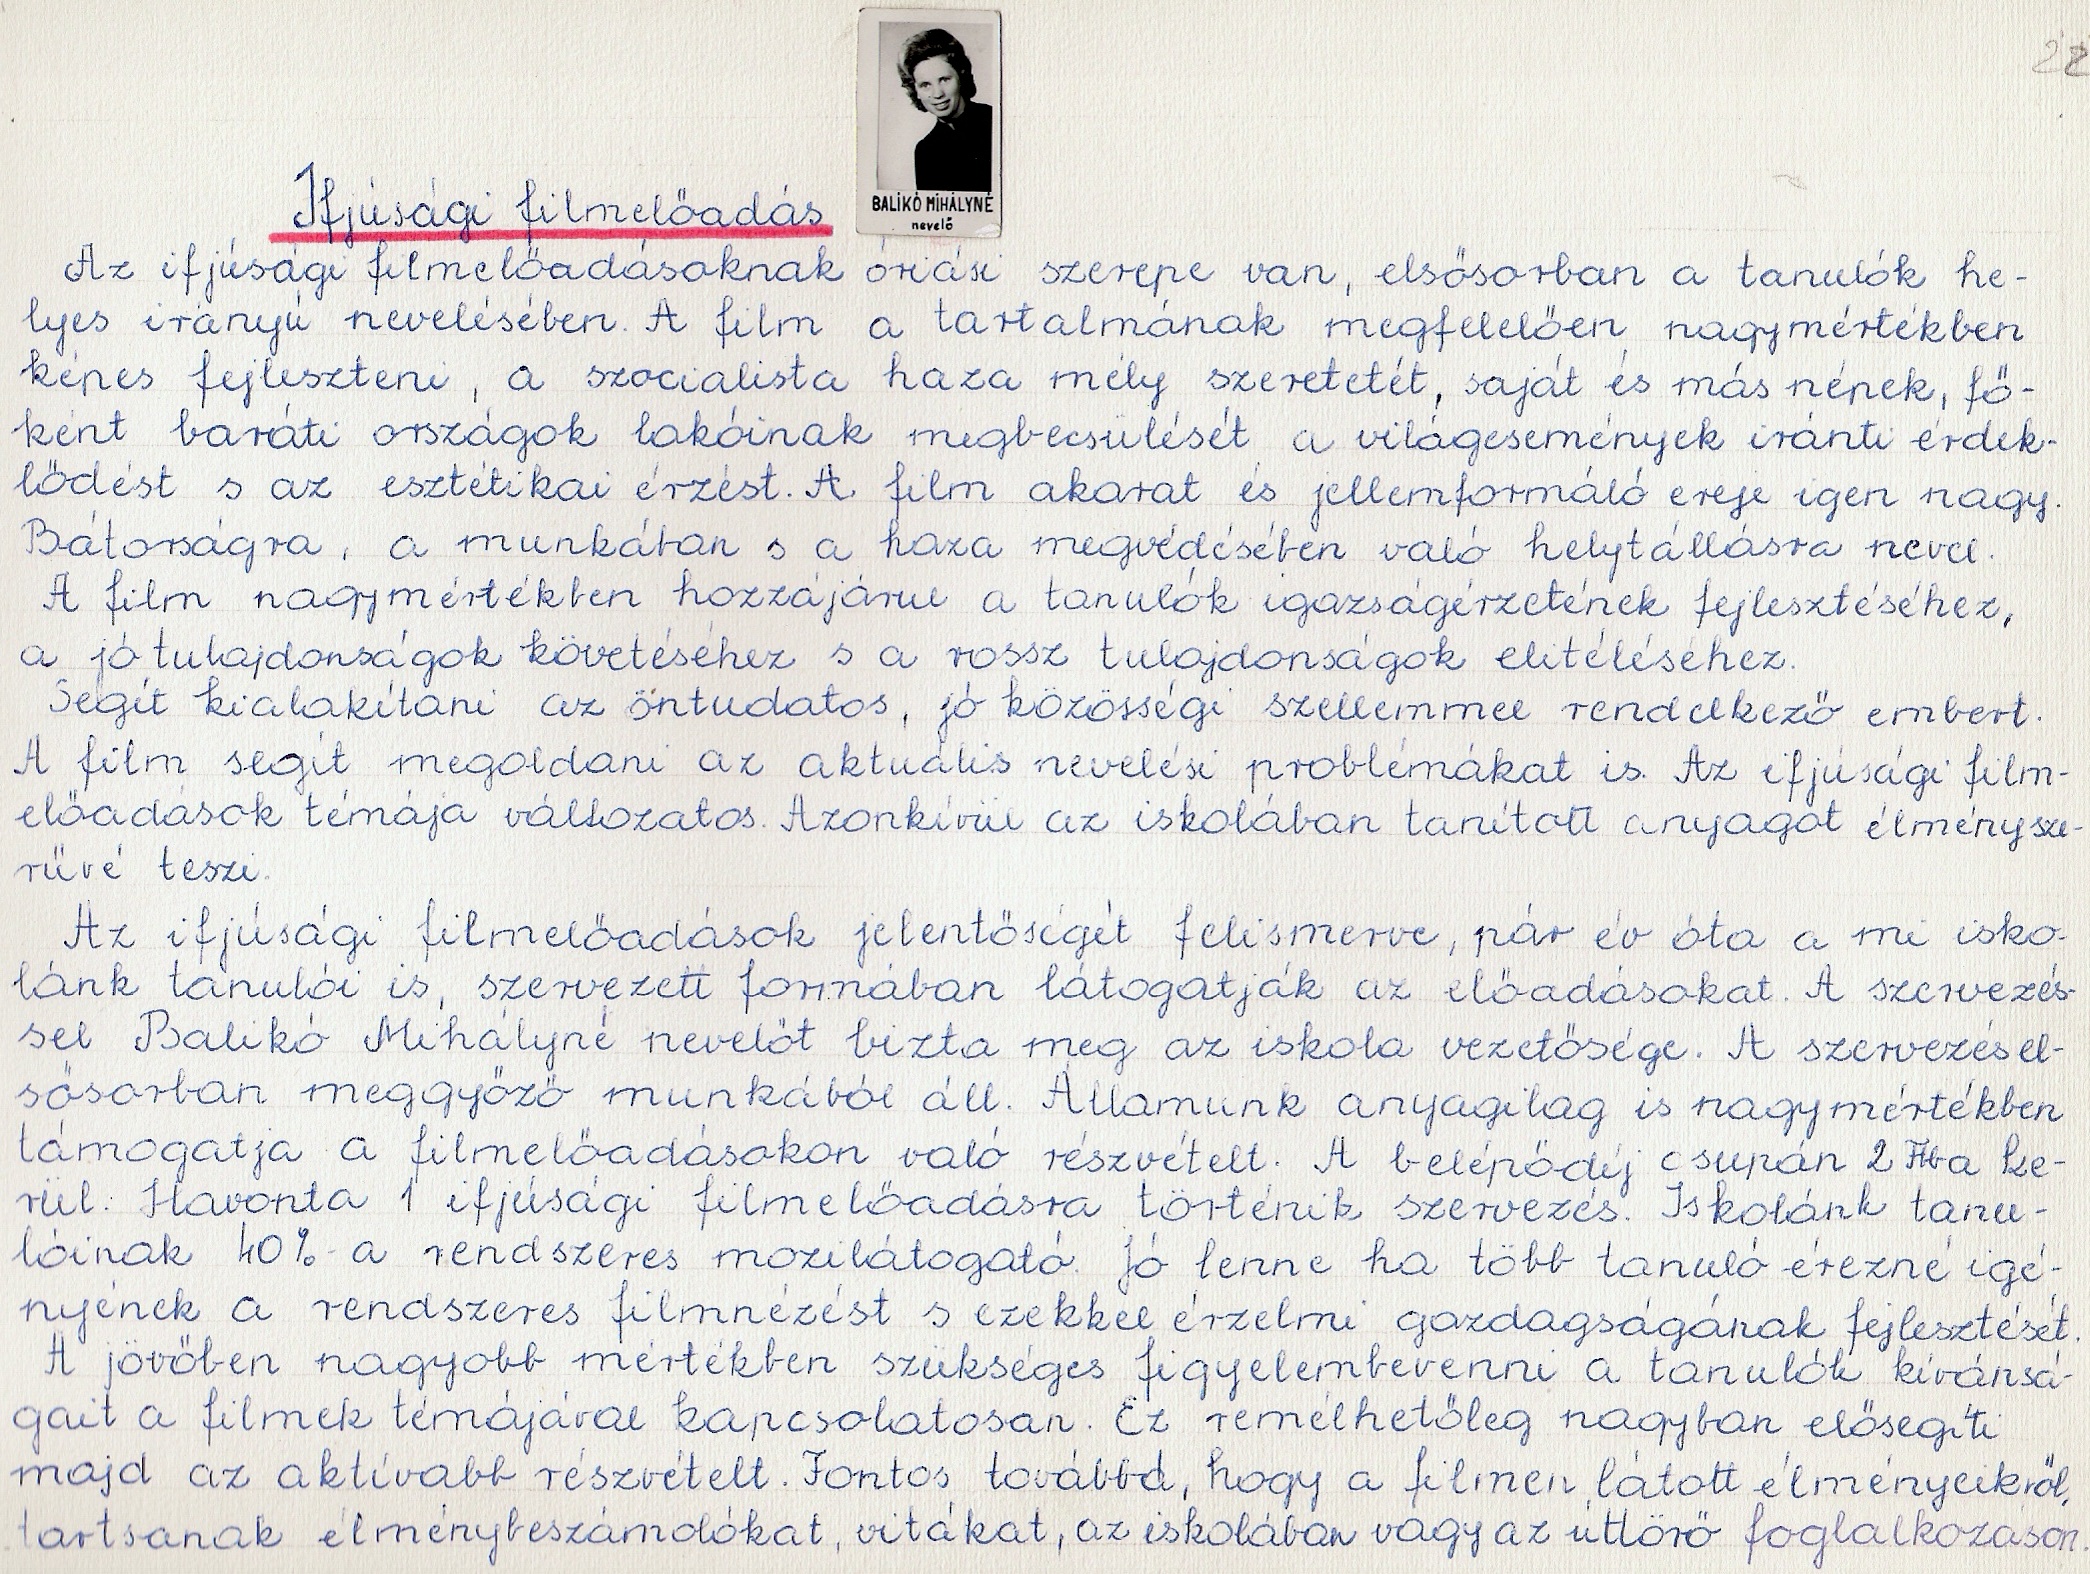 22
BALIKÓ MIHÁLYNÉ
nevelő
Ifjúsági filmelőadás
Az ifjúsági filmelőadásoknak óriási szerepe van, elsősorban a tanulók he-
lyes irányú nevelésében. A film a tartalmának megfelelően nagymértékben
képes fejleszteni, a szocialista haza mély szeretetét, saját és más népek, fő-
ként baráti országok lakóinak megbecsülését a világesemények iránti érdek-
lődést s az esztétikai érzést. A film akarat és jellemformáló ereje igen nagy.
Bátorságra, a munkában s a haza megvédésében való helytállásra nevel.
A film nagymértékben hozzájárul a tanulók igazságérzetének fejlesztéséhez,
a jó tulajdonságok követéséhez s a rossz tulajdonságok elitéléséhez.
Segít kialakítani az öntudatos, jó közösségi szellemmel rendelkező embert.
A film segít megoldani az aktuális nevelési problémákat is. Az ifjúsági film-
előadások témája változatos. Azonkívül az iskolában tanított anyagot élménysze-
rűvé teszi.
Az ifjúsági filmelőadások jelentőségét felismerve, pár év óta a mi isko-
lánk tanulói is, szervezett formában látogatják az előadásokat. A szervezés-
sel Balikó Mihályné nevelőt bízta meg az iskola vezetősége. A szervezés el-
sősorban meggyőző munkából áll. Államunk anyagilag is nagymértékben
támogatja a filmelőadásokon való részvételt. A belépődíj csupán 2 Ft-ba ke-
rül. Havonta 1 ifjúsági filmelőadásra történik szervezés. Iskolánk tanu-
lóinak 40%-a rendszeres mozilátogató. Jó lenne ha több tanuló érezné igé-
nyének a rendszeres filmnézést s ezekkel érzelmi gazdagságának fejlesztését.
A jövőben nagyobb mértékben szükséges figyelembevenni a tanulók kívánsá-
gait a filmek témájával kapcsolatosan. Ez remélhetőleg nagyban elősegíti
majd az aktívabb részvételt. Fontos továbbá, hogy a filmen látott élményeikről,
tartsanak élménybeszámolókat, vitákat, az iskolában vagy az úttörő foglalkozáson.